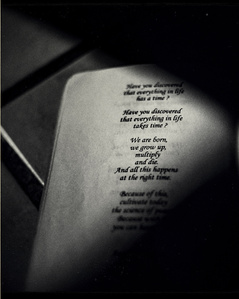 Have you discovered
that everything in life
has a time ?
Have you discovered
that everything in life
takes time ?
We are born,
we grow up,
multiply
and die.
And all this happens
at the right time.
Because of this,
cultivate today
the science of
Because
you can